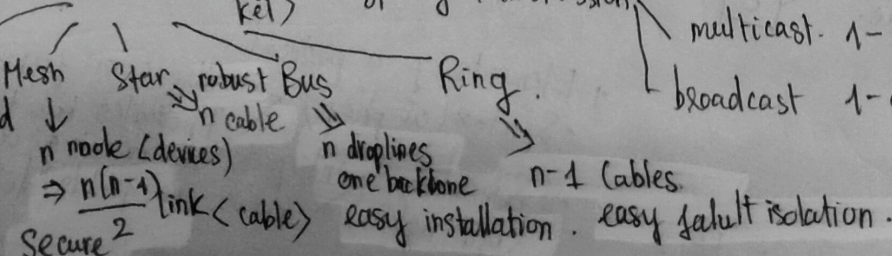 kel)
multicast. 1-
Mesh Star robust Bus Ring.
broadcast 1-
d ↓ ⇒ n cable ⇒ ⇒
n node (devices) n droplines
one backbone n-1 Cables.
⇒ n(n-1)/2 link < cable> easy installation. easy falult isolation.
Secure